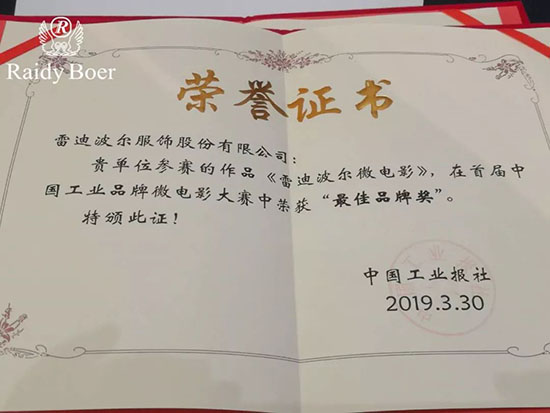 R
Raidy Boer
荣誉证书
雷迪波尔服饰股份有限公司：
贵单位参赛的作品《雷迪波尔微电影》，在首届中
国工业品牌微电影大赛中荣获“最佳品牌奖”。
特颁此证！
中国工业报社
2019.3.30